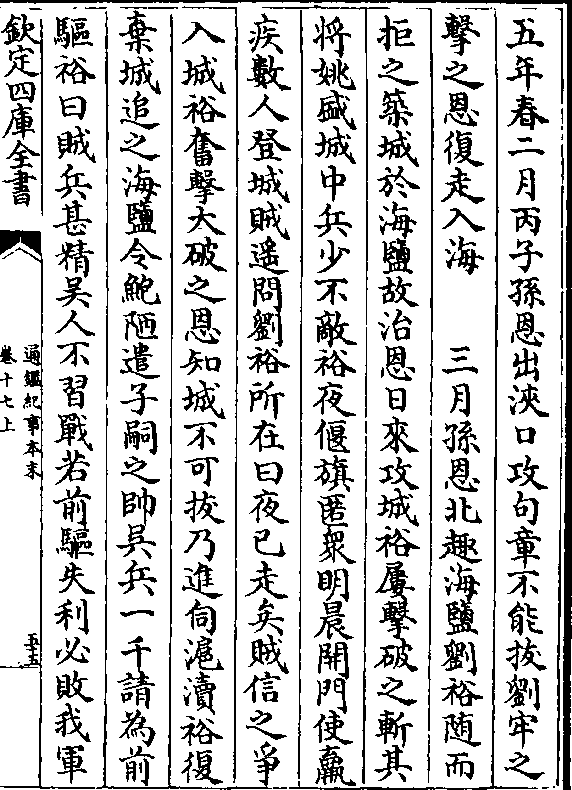 五年春二月丙子孫恩出浹口攻句章不能拔劉牢之
擊之恩復走入海　三月孫恩北趣海鹽劉裕随而
拒之築城於海鹽故治恩日來攻城裕屢擊破之斬其
將姚盛城中兵少不敵裕夜偃旗匿衆明晨開門使羸
疾數人登城賊遥問劉裕所在曰夜已走矣賊信之爭
入城裕奮擊大破之恩知城不可拔乃進向滬瀆裕復
棄城追之海鹽令鮑陋遣子嗣之帥吳兵一千請為前
驅裕曰賊兵甚精吳人不習戰若前驅失利必敗我軍
欽定四庫全書
通鑑紀事本末
卷十七上
五十五